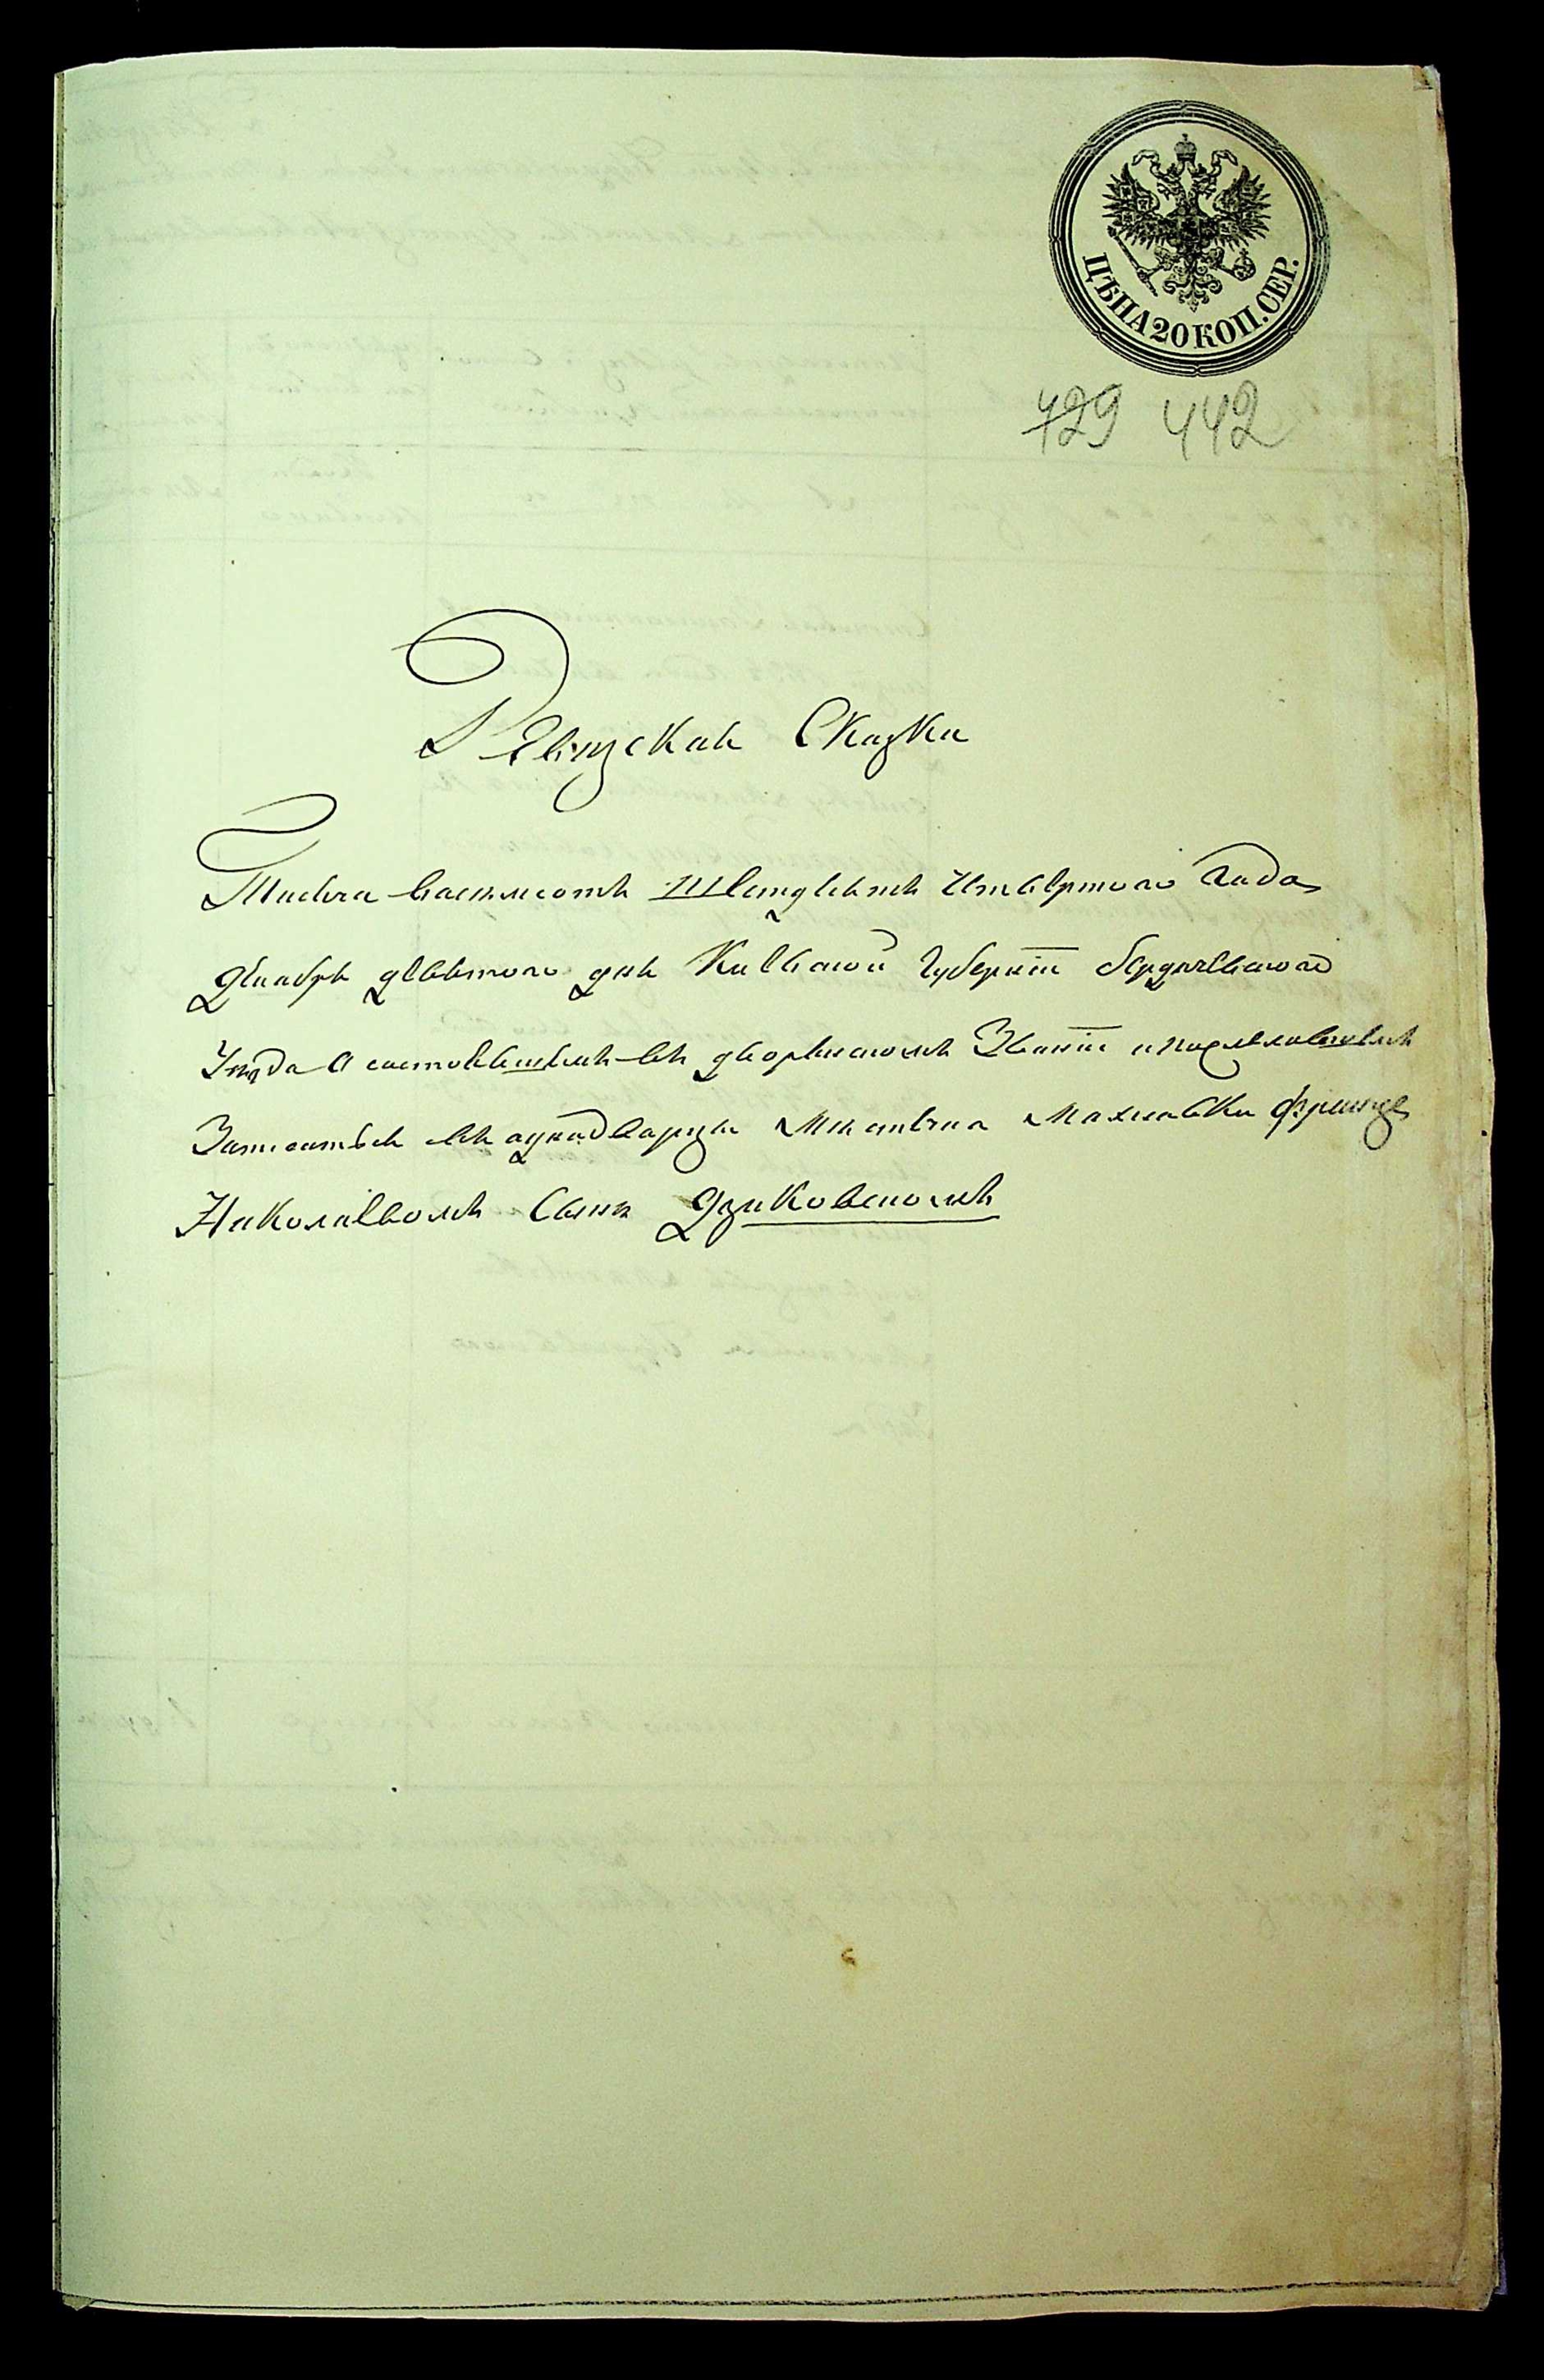 ЦѢНА 20 КОП. СЕР.
729 442
Ревизская Сказка
Тысеча восемсотъ шестдесятъ четвертого года
Декабря девятого дня Киевской Губерніи бердичевского
Уезда О состоявшемъ въ дворянскомъ Званіи и
Записаться въ однодворцы местечка Махновки Францѣ
Николаевомъ Сынѣ Дзиковскомъ